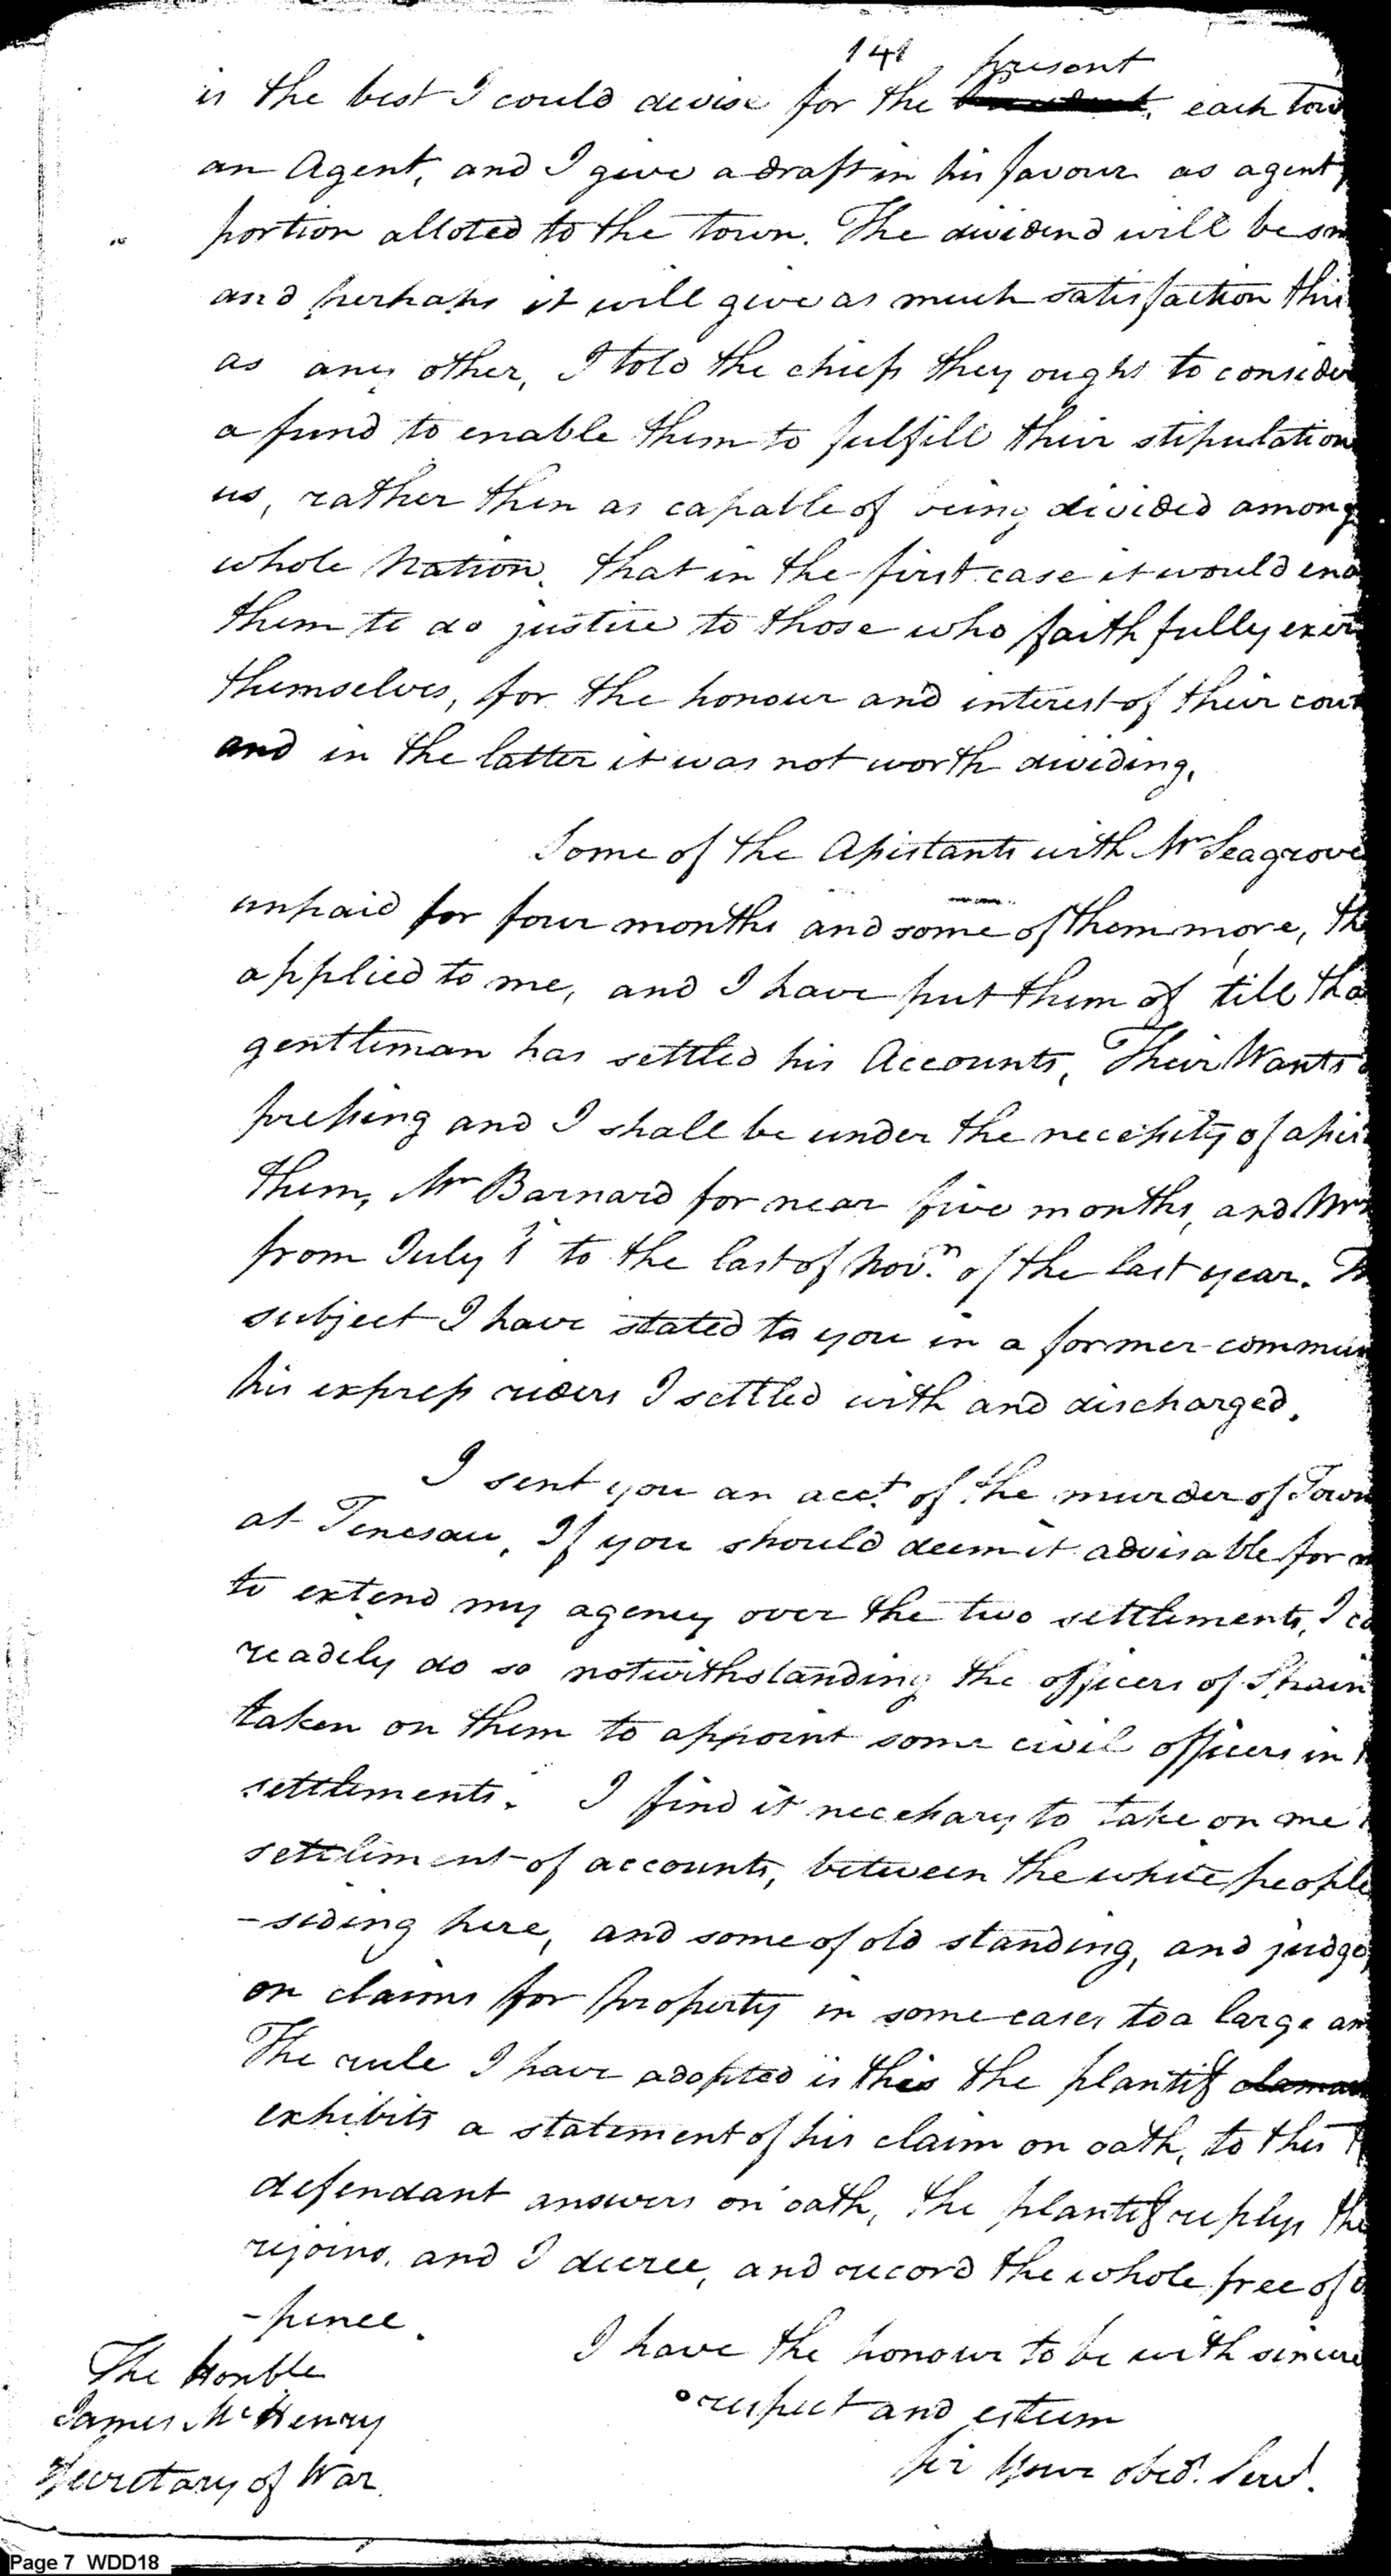 141
present
is the best I could devise for the each tow
an Agent, and I give a draft in his favour as agent,
portion alloted to the town. The dividend will be sm
and perhaps it will give as much satisfaction this
as any other, I told the chiefs they ought to consider
a fund to enable them to fulfill their stipulation
us, rather then as capable of being divided among
whole Nation. that in the first case it would ena
them to do justice to those who faithfully exert
themselves, for the honour and interest of their coun
and in the latter it was not worth dividing,
Some of the Assistants with Mr Seagrove
unpaid for four months and some of them more, th
applied to me, and I have put them of till tha
gentleman has settled his Accounts, Their Wants
pressing and I shall be under the necessity of assis
them, Mr Barnard for near five months, and Mr
from July 1 to the last of Novr. of the last year. Th
subject I have stated to you in a former commun
his express riders I settled with and discharged.
I sent you an acct. of the murder of Town
at Tenesau, If you should deem it advisable for m
to extend my agency over the two settlements, I ca
readily do so notwithstanding the officers of Spain
taken on them to appoint some civil officers in
settlements. I find it necessary to take on me
settlement of accounts, between the white people
-siding here, and some of old standing, and judge
on claims for property in some cases to a large am
The rule I have adopted is this the plantif claman
exhibits a statement of his claim on oath, to this
defendant answers on oath, the plantif replys the
rejoins, and I decree, and record the whole free of
-pence.
I have the honour to be with sincere
respect and esteem
Sir Your obed. Servt.
The Honble
James McHenry
Secretary of War.
Page 7 WDD18